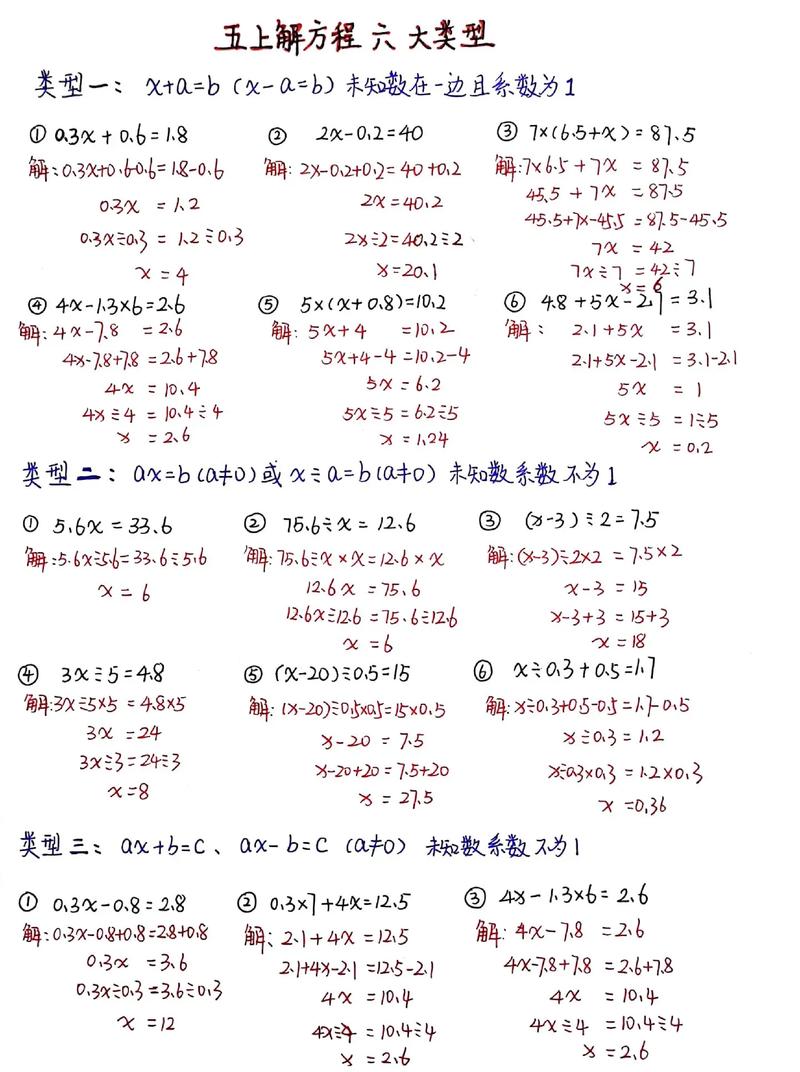 五上解方程六大类型
类型一: x+a=b (x-a=b) 未知数在一边且系数为1
① 0.3x+0.6=1.8
解:0.3x+0.6-0.6=1.8-0.6
0.3x =1.2
0.3x÷0.3 = 1.2÷0.3
x = 4
② 2x-0.2=40
解: 2x-0.2+0.2=40+0.2
2x=40.2
2x÷2=40.2÷2
x=20.1
③ 7×(6.5+x)=87.5
解:7×6.5+7x = 87.5
45.5+7x = 87.5
45.5+7x-45.5 =87.5-45.5
7x = 42
7x÷7 =42÷7
x= 6
④ 4x-1.3×6=2.6
解:4x-7.8 =2.6
4x-7.8+7.8 =2.6+7.8
4x = 10.4
4x÷4 = 10.4÷4
x = 2.6
⑤ 5×(x+0.8)=10.2
解: 5x+4 =10.2
5x+4-4 =10.2-4
5x = 6.2
5x÷5 =6.2÷5
x = 1.24
⑥ 4.8+5x-2.7=3.1
解: 2.1+5x =3.1
2.1+5x-2.1 =3.1-2.1
5x = 1
5x÷5 =1÷5
x =0.2
类型二: ax=b(a≠0)或 x÷a=b(a≠0) 未知数系数不为1
① 5.6x=33.6
解:5.6x÷5.6=33.6÷5.6
x = 6
② 75.6÷x = 12.6
解:75.6÷x×x=12.6×x
12.6x =75.6
12.6x÷12.6 =75.6÷12.6
x =6
③ (x-3)÷2=7.5
解:(x-3)÷2×2 =7.5×2
x-3 = 15
x-3+3 =15+3
x =18
④ 3x÷5=4.8
解:3x÷5×5 =4.8×5
3x =24
3x÷3=24÷3
x=8
⑤ (x-20)÷0.5=15
解: (x-20)÷0.5×0.5=15×0.5
x-20 = 7.5
x-20+20 =7.5+20
x = 27.5
⑥ x÷0.3+0.5=1.7
解: x÷0.3+0.5-0.5=1.7-0.5
x÷0.3 = 1.2
x÷0.3×0.3 =1.2×0.3
x =0.36
类型三: ax+b=c、ax-b=c (a≠0) 未知数系数不为1
① 0.3x-0.8=2.8
解:0.3x-0.8+0.8=2.8+0.8
0.3x =3.6
0.3x÷0.3=3.6÷0.3
x =12
② 0.3×7+4x=12.5
解: 2.1+4x =12.5
2.1+4x-2.1 =12.5-2.1
4x =10.4
4x÷4 =10.4÷4
x =2.6
③ 4x-1.3×6= 2.6
解: 4x-7.8 =2.6
4x-7.8+7.8 =2.6+7.8
4x =10.4
4x÷4 =10.4÷4
x =2.6